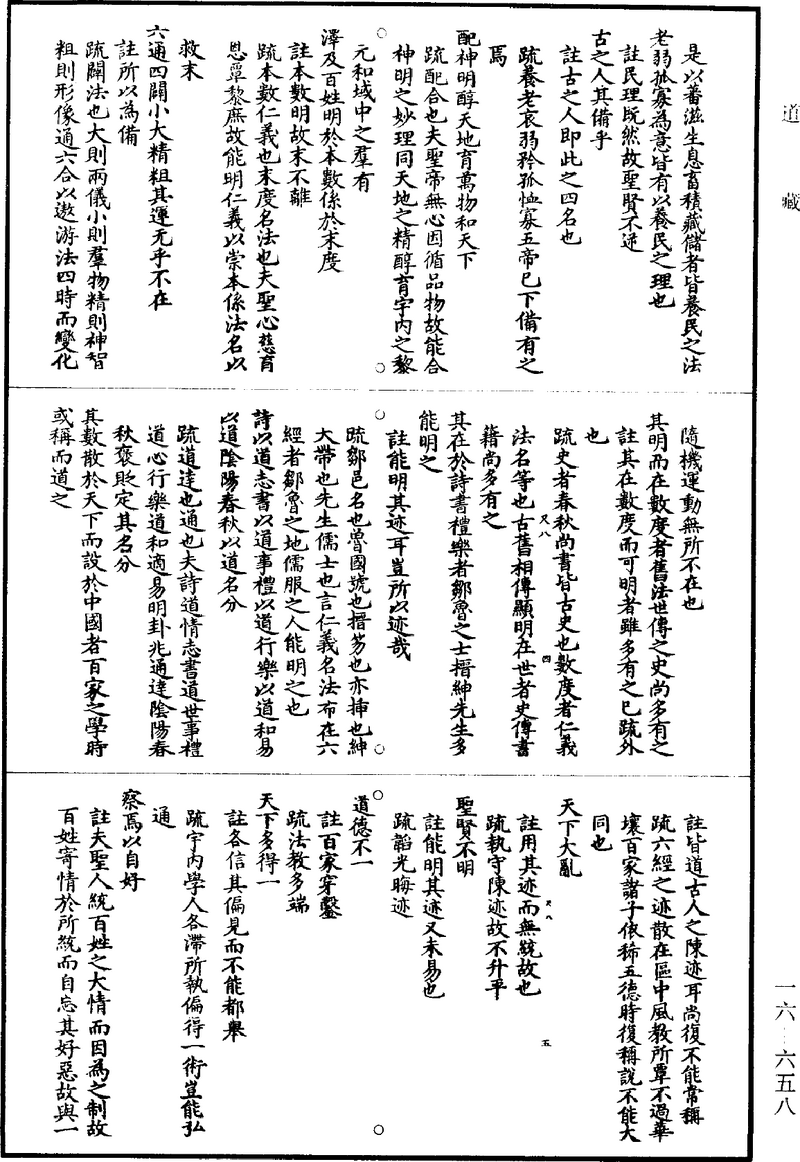 道藏
是以蕃滋生息畜積藏儲者皆養民之法
老弱孤寡為意皆有以養民之理也
註民理既然故聖賢不逆
古之人其備乎
註古之人即此之四名也
疏養老哀弱矜孤恤寡五帝已下備有之
焉
配神明醇天地育萬物和天下
疏配合也夫聖帝無心因循品物故能合
神明之妙理同天地之精醇育宇內之黎
元和域中之羣有
澤及百姓明於本數係於末度
註本數明故末不離
疏本數仁義也末度名法也夫聖心慈育
恩覃黎庶故能明仁義以崇本係法名以
救末
六通四闢小大精粗其運无乎不在
註所以為備
疏闢法也大則兩儀小則羣物精則神智
粗則形像通六合以遨游法四時而變化
隨機運動無所不在也
其明而在數度者舊法世傳之史尚多有之
註其在數度而可明者雖多有之已疏外
也
疏史者春秋尚書皆古史也數度者仁義
法名等也古舊相傳顯明在世者史傳書
籍尚多有之
尺八
四
其在於詩書禮樂者鄒魯之士搢紳先生多
能明之
註能明其迹耳豈所以迹哉
疏鄒邑名也魯國號也搢笏也亦揷也紳
大帶也先生儒士也言仁義名法布在六
經者鄒魯之地儒服之人能明之也
詩以道志書以道事禮以道行樂以道和易
以道陰陽春秋以道名分
疏道達也通也夫詩道情志書道世事禮
道心行樂道和適易明卦兆通達陰陽春
秋褒貶定其名分
其數散於天下而設於中國者百家之學時
或稱而道之
註皆道古人之陳迹耳尚復不能常稱
疏六經之迹散在區中風教所覃不過華
壤百家諸子依稀五德時復稱說不能大
同也
天下大亂
尺八
五
註用其迹而無統故也
疏執守陳迹故不升平
聖賢不明
註能明其迹又未易也
疏韜光晦迹
道德不一
註百家穿鑿
疏法教多端
天下多得一
註各信其偏見而不能都舉
疏宇內學人各滯所執偏得一術豈能弘
通
察焉以自好
註夫聖人統百姓之大情而因為之制故
百姓寄情於所統而自忘其好惡故與一
一六—六五八